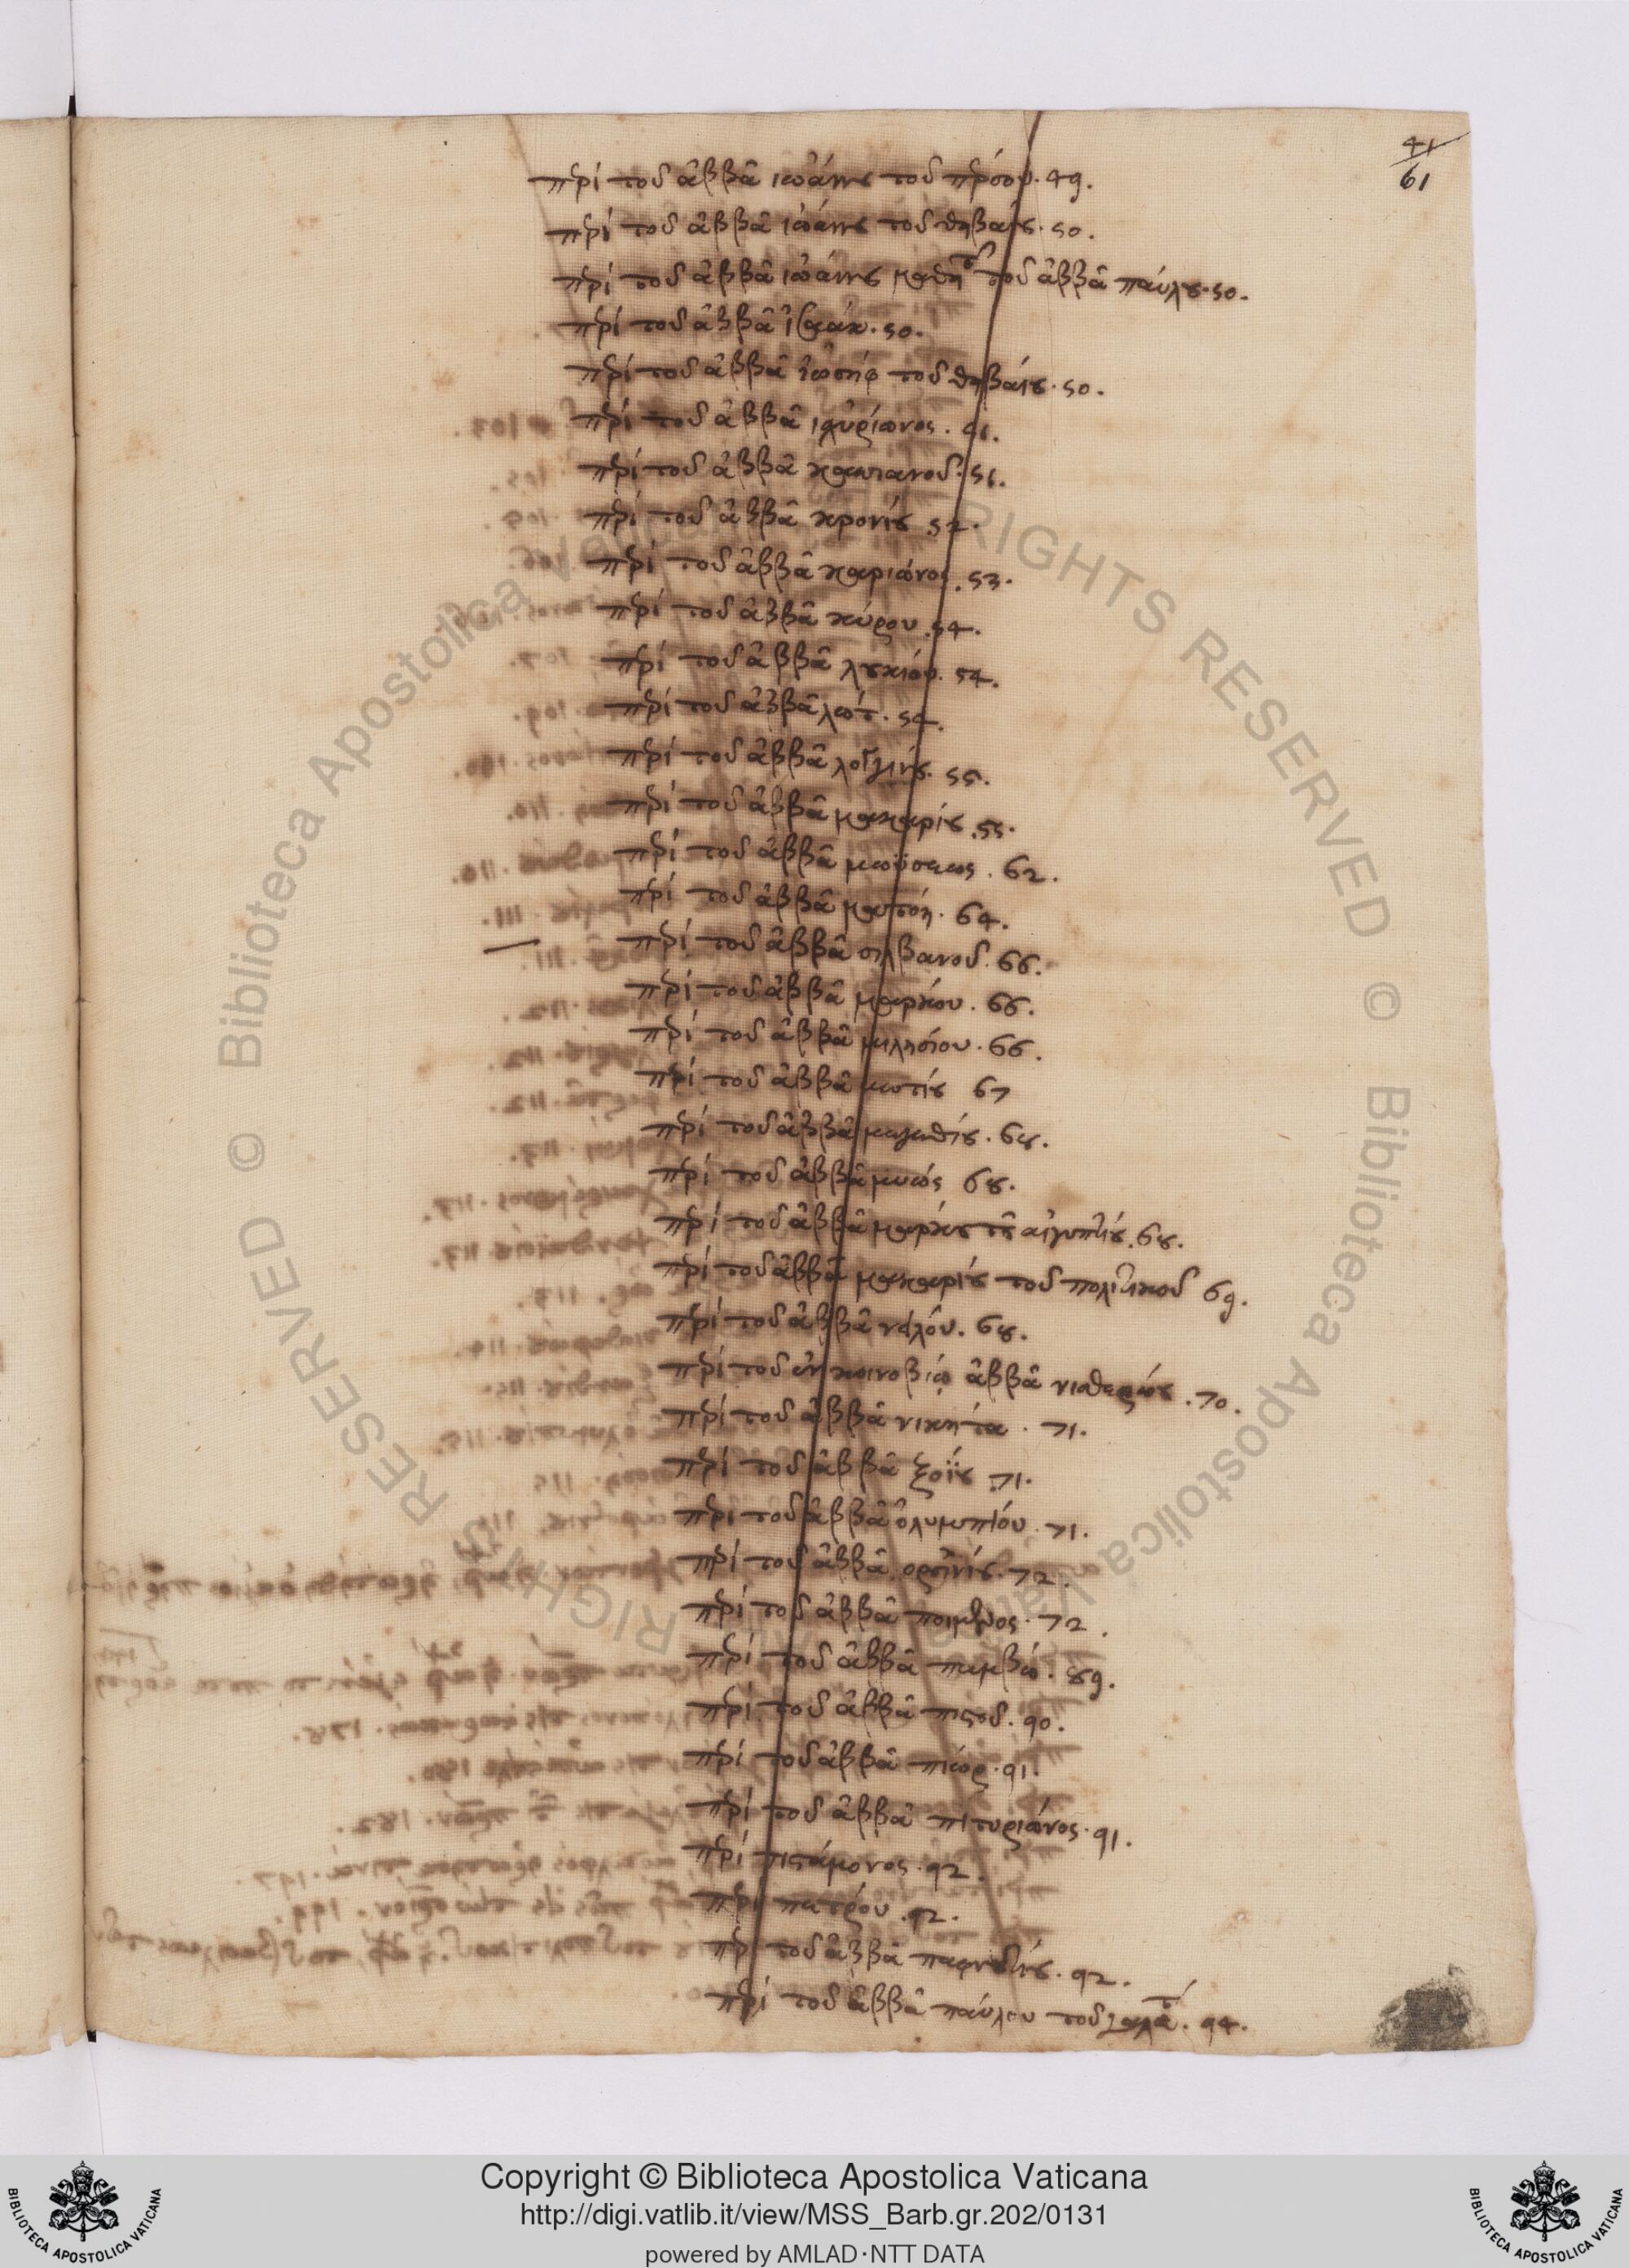 41
61
πρὶ τοῦ ἀββᾶ ἰωάννου τοῦ πέρσου. 49.
πρὶ τοῦ ἀββᾶ ἰωάννου τοῦ θηβαίου. 50.
πρὶ τοῦ ἀββᾶ ἰωάννου μαθητοῦ τοῦ ἀββᾶ παύλου. 50.
πρὶ τοῦ ἀββᾶ ἰσαάκ. 50.
πρὶ τοῦ ἀββᾶ ἰωσὴφ τοῦ θηβαίου. 50.
πρὶ τοῦ ἀββᾶ ἱλαρίωνος. 51.
πρὶ τοῦ ἀββᾶ κασιανοῦ. 51.
πρὶ τοῦ ἀββᾶ κρονίου 52.
πρὶ τοῦ ἀββᾶ καρίωνος. 53.
πρὶ τοῦ ἀββᾶ κύρου. 54.
πρὶ τοῦ ἀββᾶ λουκίου. 54.
πρὶ τοῦ ἀββᾶ λώτ. 54.
πρὶ τοῦ ἀββᾶ λογγίνου. 55.
πρὶ τοῦ ἀββᾶ μακαρίου. 55.
πρὶ τοῦ ἀββᾶ μωϋσεως. 62.
πρὶ τοῦ ἀββᾶ ματόη. 64.
πρὶ τοῦ ἀββᾶ σιλβανοῦ. 66.
πρὶ τοῦ ἀββᾶ μαρκου. 66.
πρὶ τοῦ ἀββᾶ μιλησίου. 66.
πρὶ τοῦ ἀββᾶ μοτίου 67
πρὶ τοῦ ἀββᾶ μεγεθίου. 68.
πρὶ τοῦ ἀββᾶ μιώς 68.
πρὶ τοῦ ἀββᾶ μαρκου τοῦ αἰγυπτίου. 68.
πρὶ τοῦ ἀββᾶ μακαρίου τοῦ πολιτικοῦ 69.
πρὶ τοῦ ἀββᾶ νείλου. 68.
πρὶ τοῦ ἐν κοινοβίῳ ἀββᾶ νισθερώου. 70.
πρὶ τοῦ ἀββᾶ νικήτα. 71.
πρὶ τοῦ ἀββᾶ ξοΐου 71.
πρὶ τοῦ ἀββᾶ ὀλυμπίου. 71.
πρὶ τοῦ ἀββᾶ ορσισίου. 72.
πρὶ τοῦ ἀββᾶ ποιμένος. 72.
πρὶ τοῦ ἀββᾶ παμβώ. 89.
πρὶ τοῦ ἀββᾶ πιστοῦ. 90.
πρὶ τοῦ ἀββᾶ πιώρ. 91.
πρὶ τοῦ ἀββᾶ πιτυρίωνος. 91.
πρὶ πιστάμονος. 92.
πρὶ πέτρου. 92.
πρὶ τοῦ ἀββᾶ παφνουτίου. 92.
πρὶ τοῦ ἀββᾶ παύλου τοῦ γαλάτου. 94.
Copyright © Biblioteca Apostolica Vaticana
http://digi.vatlib.it/view/MSS_Barb.gr.202/0131
powered by AMLAD·NTT DATA
BIBLIOTECA APOSTOLICA VATICANA
BIBLIOTECA APOSTOLICA VATICANA
© Biblioteca Apostolica Vaticana RIGHTS RESERVED
© Biblioteca Apostolica Vaticana RIGHTS RESERVED